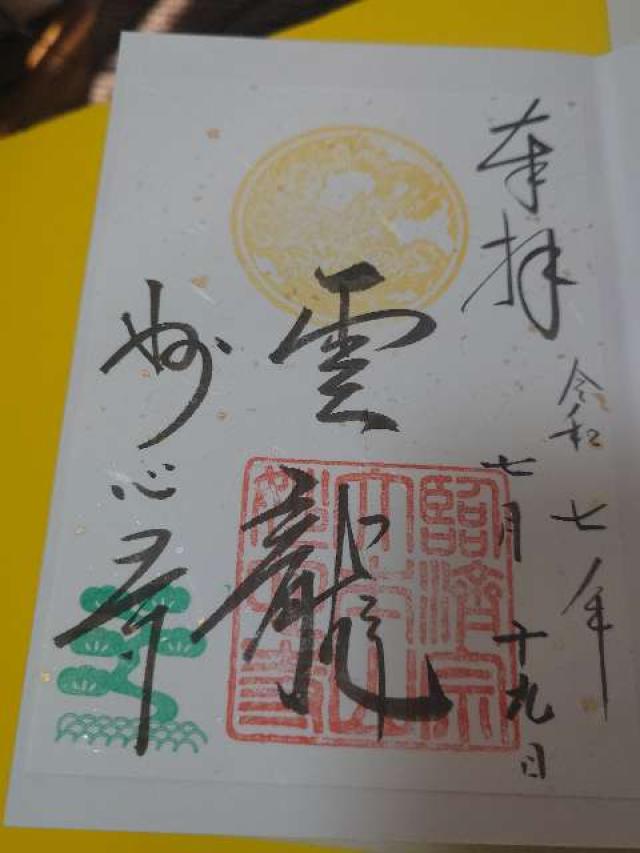 奉拝
令和七年
七月十九日
雲龍
妙心寺
臨済宗